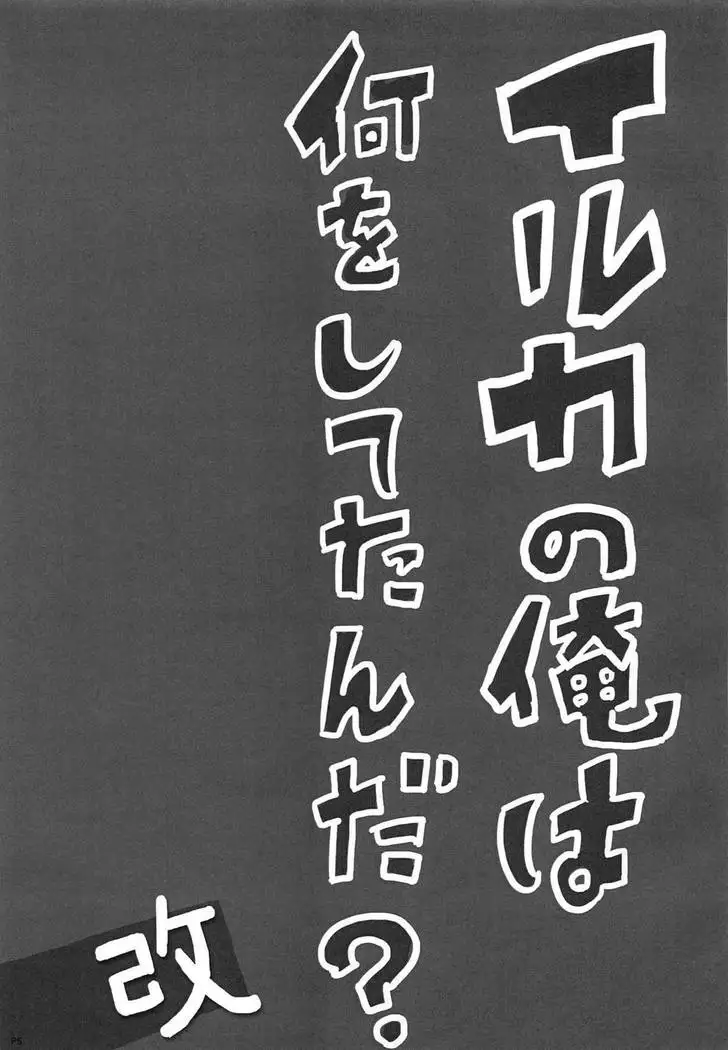 イルカの俺は
何をしてたんだ?
改
P5